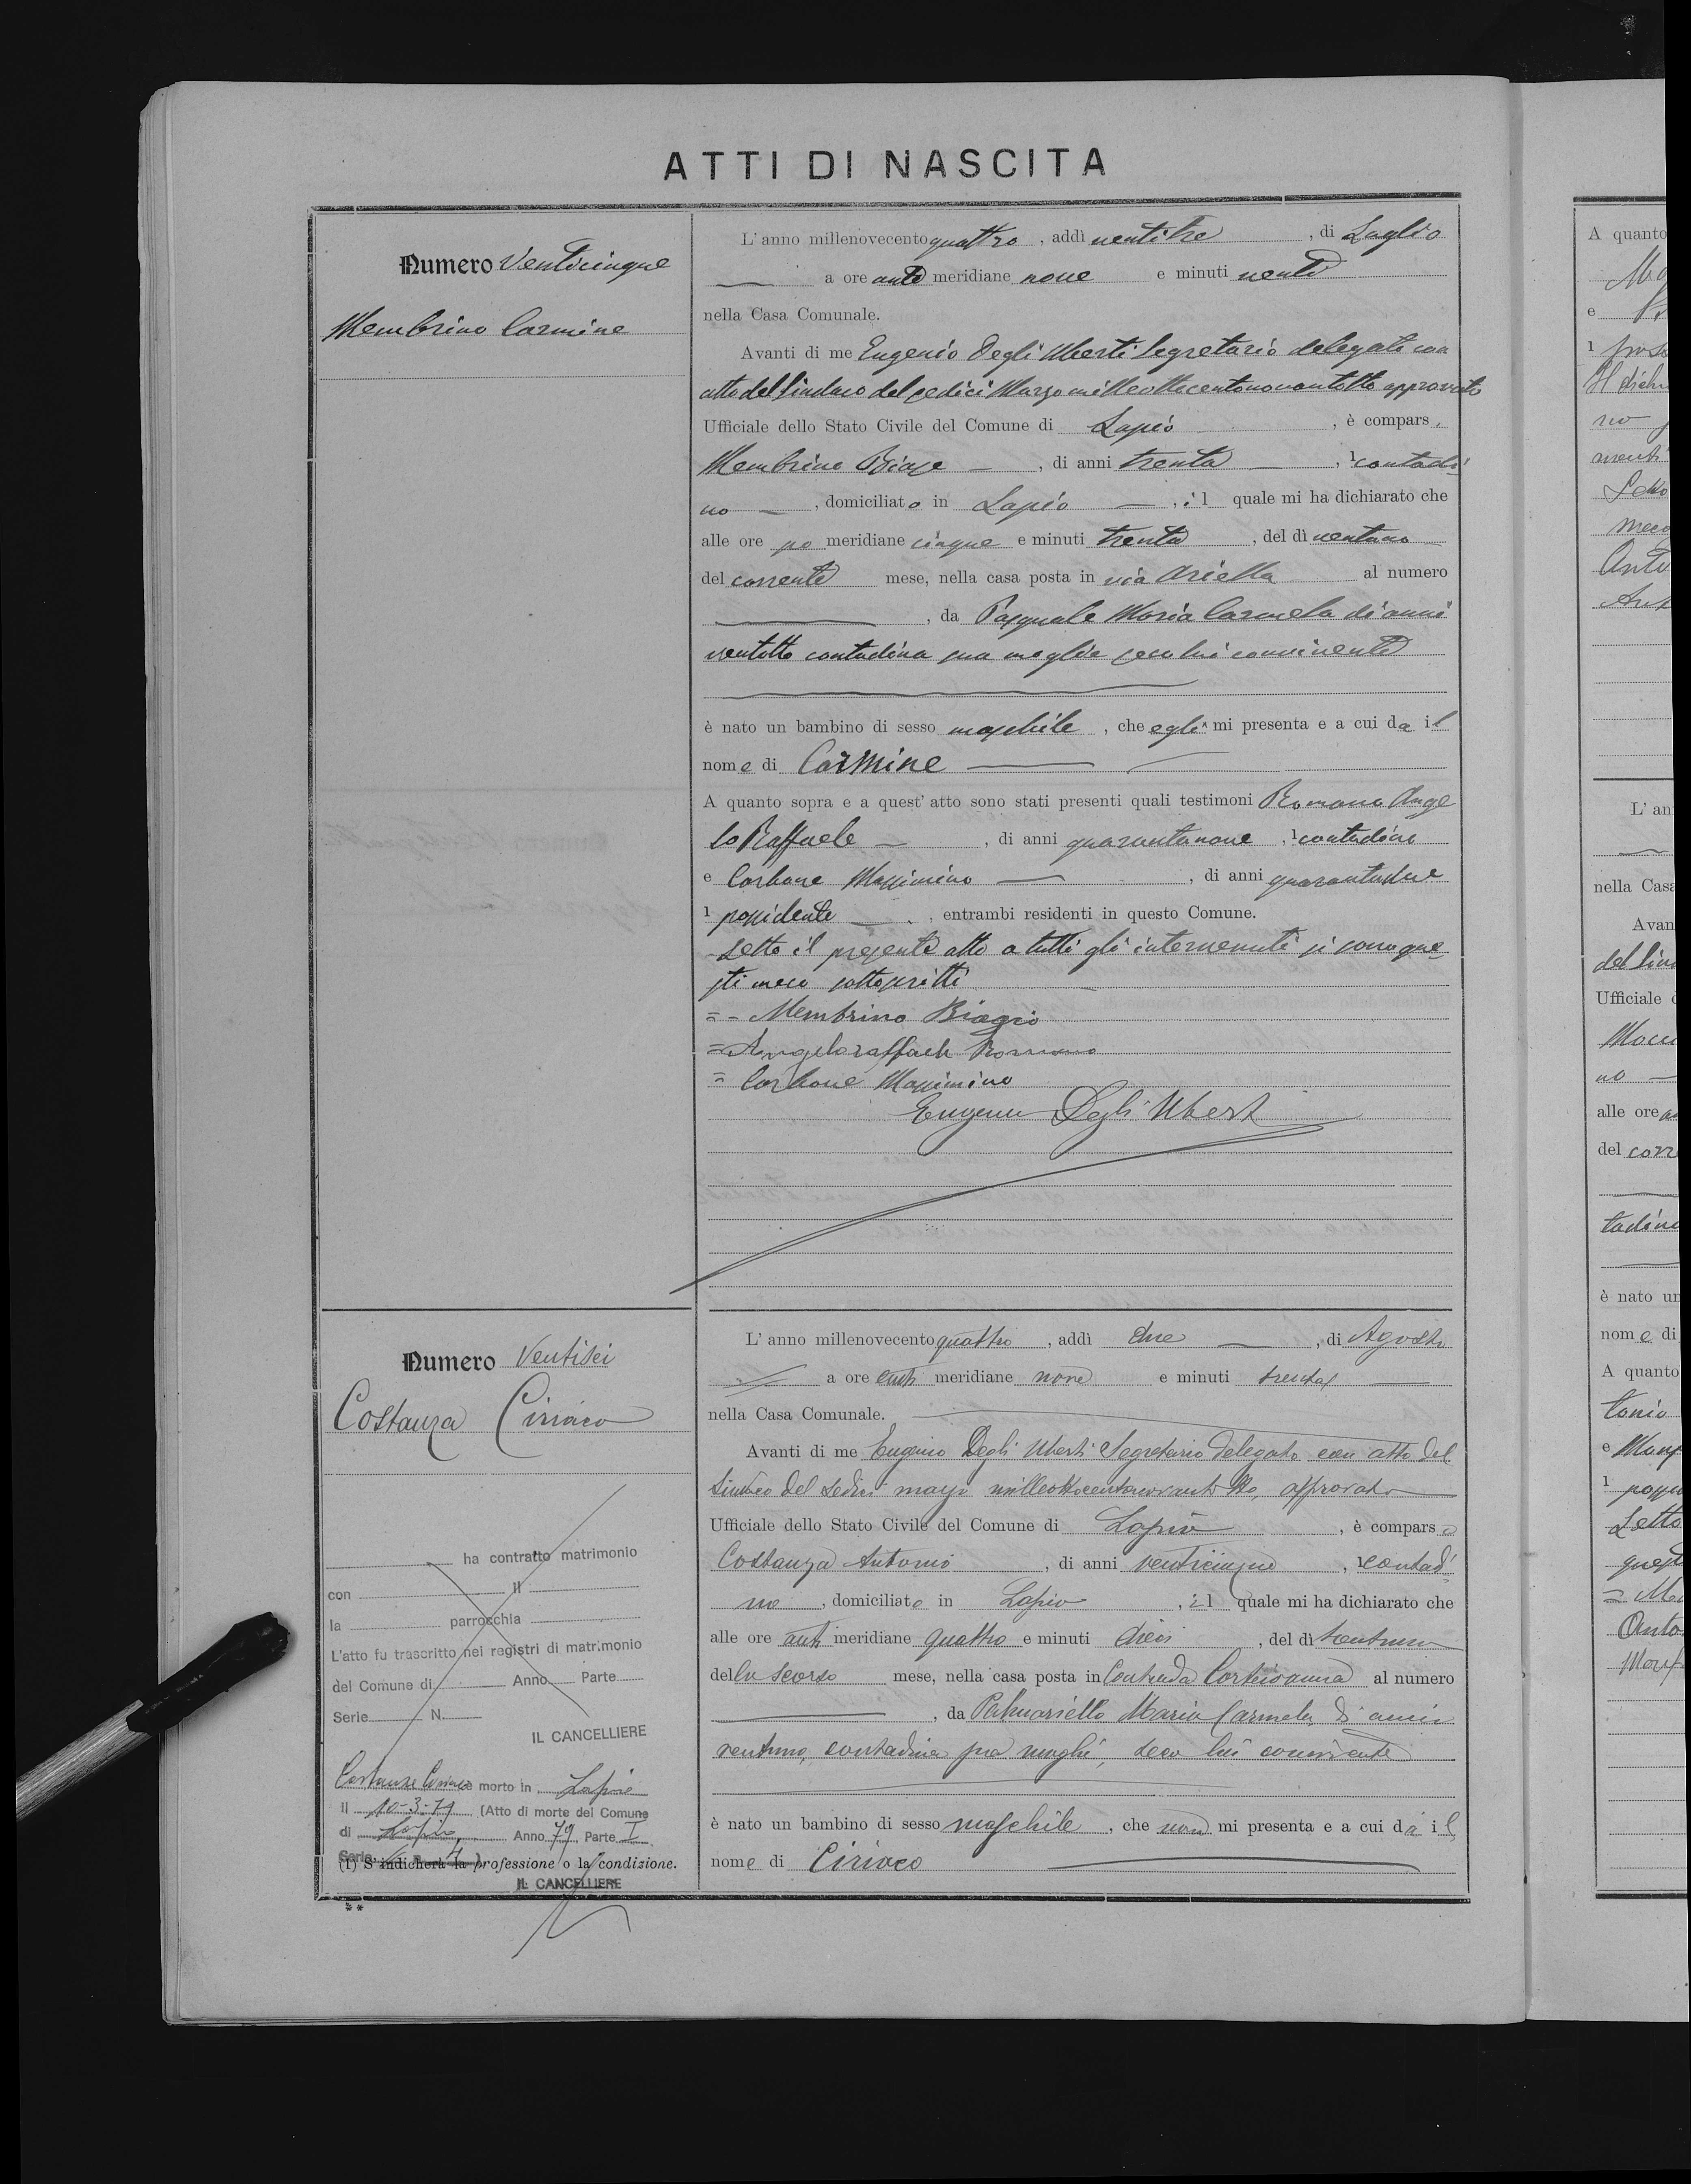 ATTI DI NASCITA
Numero Venticinque
Membrino Carmine
L'anno millenovecento quattro, addì ventitre, di Luglio
a ore anti meridiane nove e minuti venti
nella Casa Comunale.
Avanti di me Eugenio Degli Uberti Segretario delegato con
atto del Sindaco del sedici Marzo milleottocentonovantotto approvato
Ufficiale dello Stato Civile del Comune di Lapio, è compars
Membrino Biase, di anni trenta, 1 contadi
no, domiciliato in Lapio, il quale mi ha dichiarato che
alle ore po meridiane cinque e minuti trenta, del dì ventuno
del corrente mese, nella casa posta in via Ariella al numero
, da Pasquale Maria Carmela di anni
ventotto contadina sua moglie seco lui convivente
è nato un bambino di sesso maschile, che egli mi presenta e a cui da il
nome di Carmine
A quanto sopra e a quest'atto sono stati presenti quali testimoni Romano Ange
lo Raffaele, di anni quarantanove, 1 contadino
e Carbone Massimino, di anni quarantadue
1 possidente, entrambi residenti in questo Comune.
Letto il presente atto a tutti gli intervenuti si sono que
sti meco sottoscritti
=- Membrino Biagio
= Angeloraffaele Romano
= Carbone Massimino
Eugenio Degli Uberti
Numero Ventisei
Costanza Ciriaco
ha contratto matrimonio
con Il
la parrocchia
L'atto fu trascritto nei registri di matrimonio
del Comune di Anno Parte
Serie N.
IL CANCELLIERE
Costanza Ciriaco morto in Lapio
Il 10-3-79 (Atto di morte del Comune
di Lapio, Anno 79 Parte I
Serie n. 4)
(1) S'indicherà la professione o la condizione.
IL CANCELLIERE
L'anno millenovecento quattro, addì due, di Agosto
a ore anti meridiane nove e minuti trenta
nella Casa Comunale.
Avanti di me Eugenio Degli Uberti Segretario delegato con atto del
Sindaco del sedici marzo milleottocentonovantotto, approvato
Ufficiale dello Stato Civile del Comune di Lapio, è comparso
Costanza Antonio, di anni venticinque, 1 contadi
no, domiciliato in Lapio, il quale mi ha dichiarato che
alle ore anti meridiane quattro e minuti dieci, del dì trentuno
dello scorso mese, nella casa posta in Contrada al numero
, da Maria Carmela, di anni
ventuno, contadina sua moglie, seco lui convivente
è nato un bambino di sesso maschile, che non mi presenta e a cui dà il
nome di Ciriaco
A quanto
e
1
L'an
nella Casa
Avan
del Sin
Ufficiale
no
alle ore
del corr
tadina
è nato un
nome di
A quanto
tonio
e
1
Letto
quest